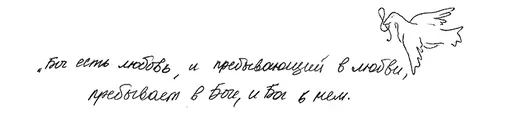 „Бог есть любовь, и пребывающий в любви,
пребывает в Боге, и Бог в нем.